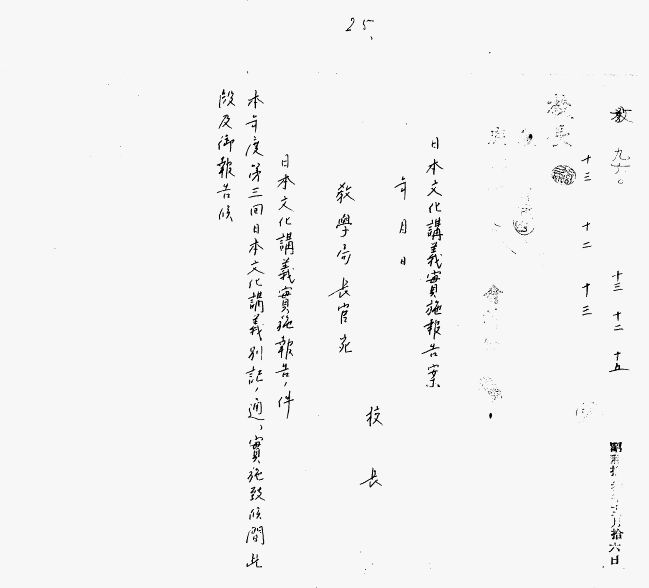 25.
教 九六。 十三 十二 十五
校長
十三 十二 十三
日本文化講義實施報告案
年 月 日
校 長
教學局長官宛
日本文化講義實施報告ノ件
本年度第三回日本文化講義別記ノ通リ實施致候間此
段及御報告候